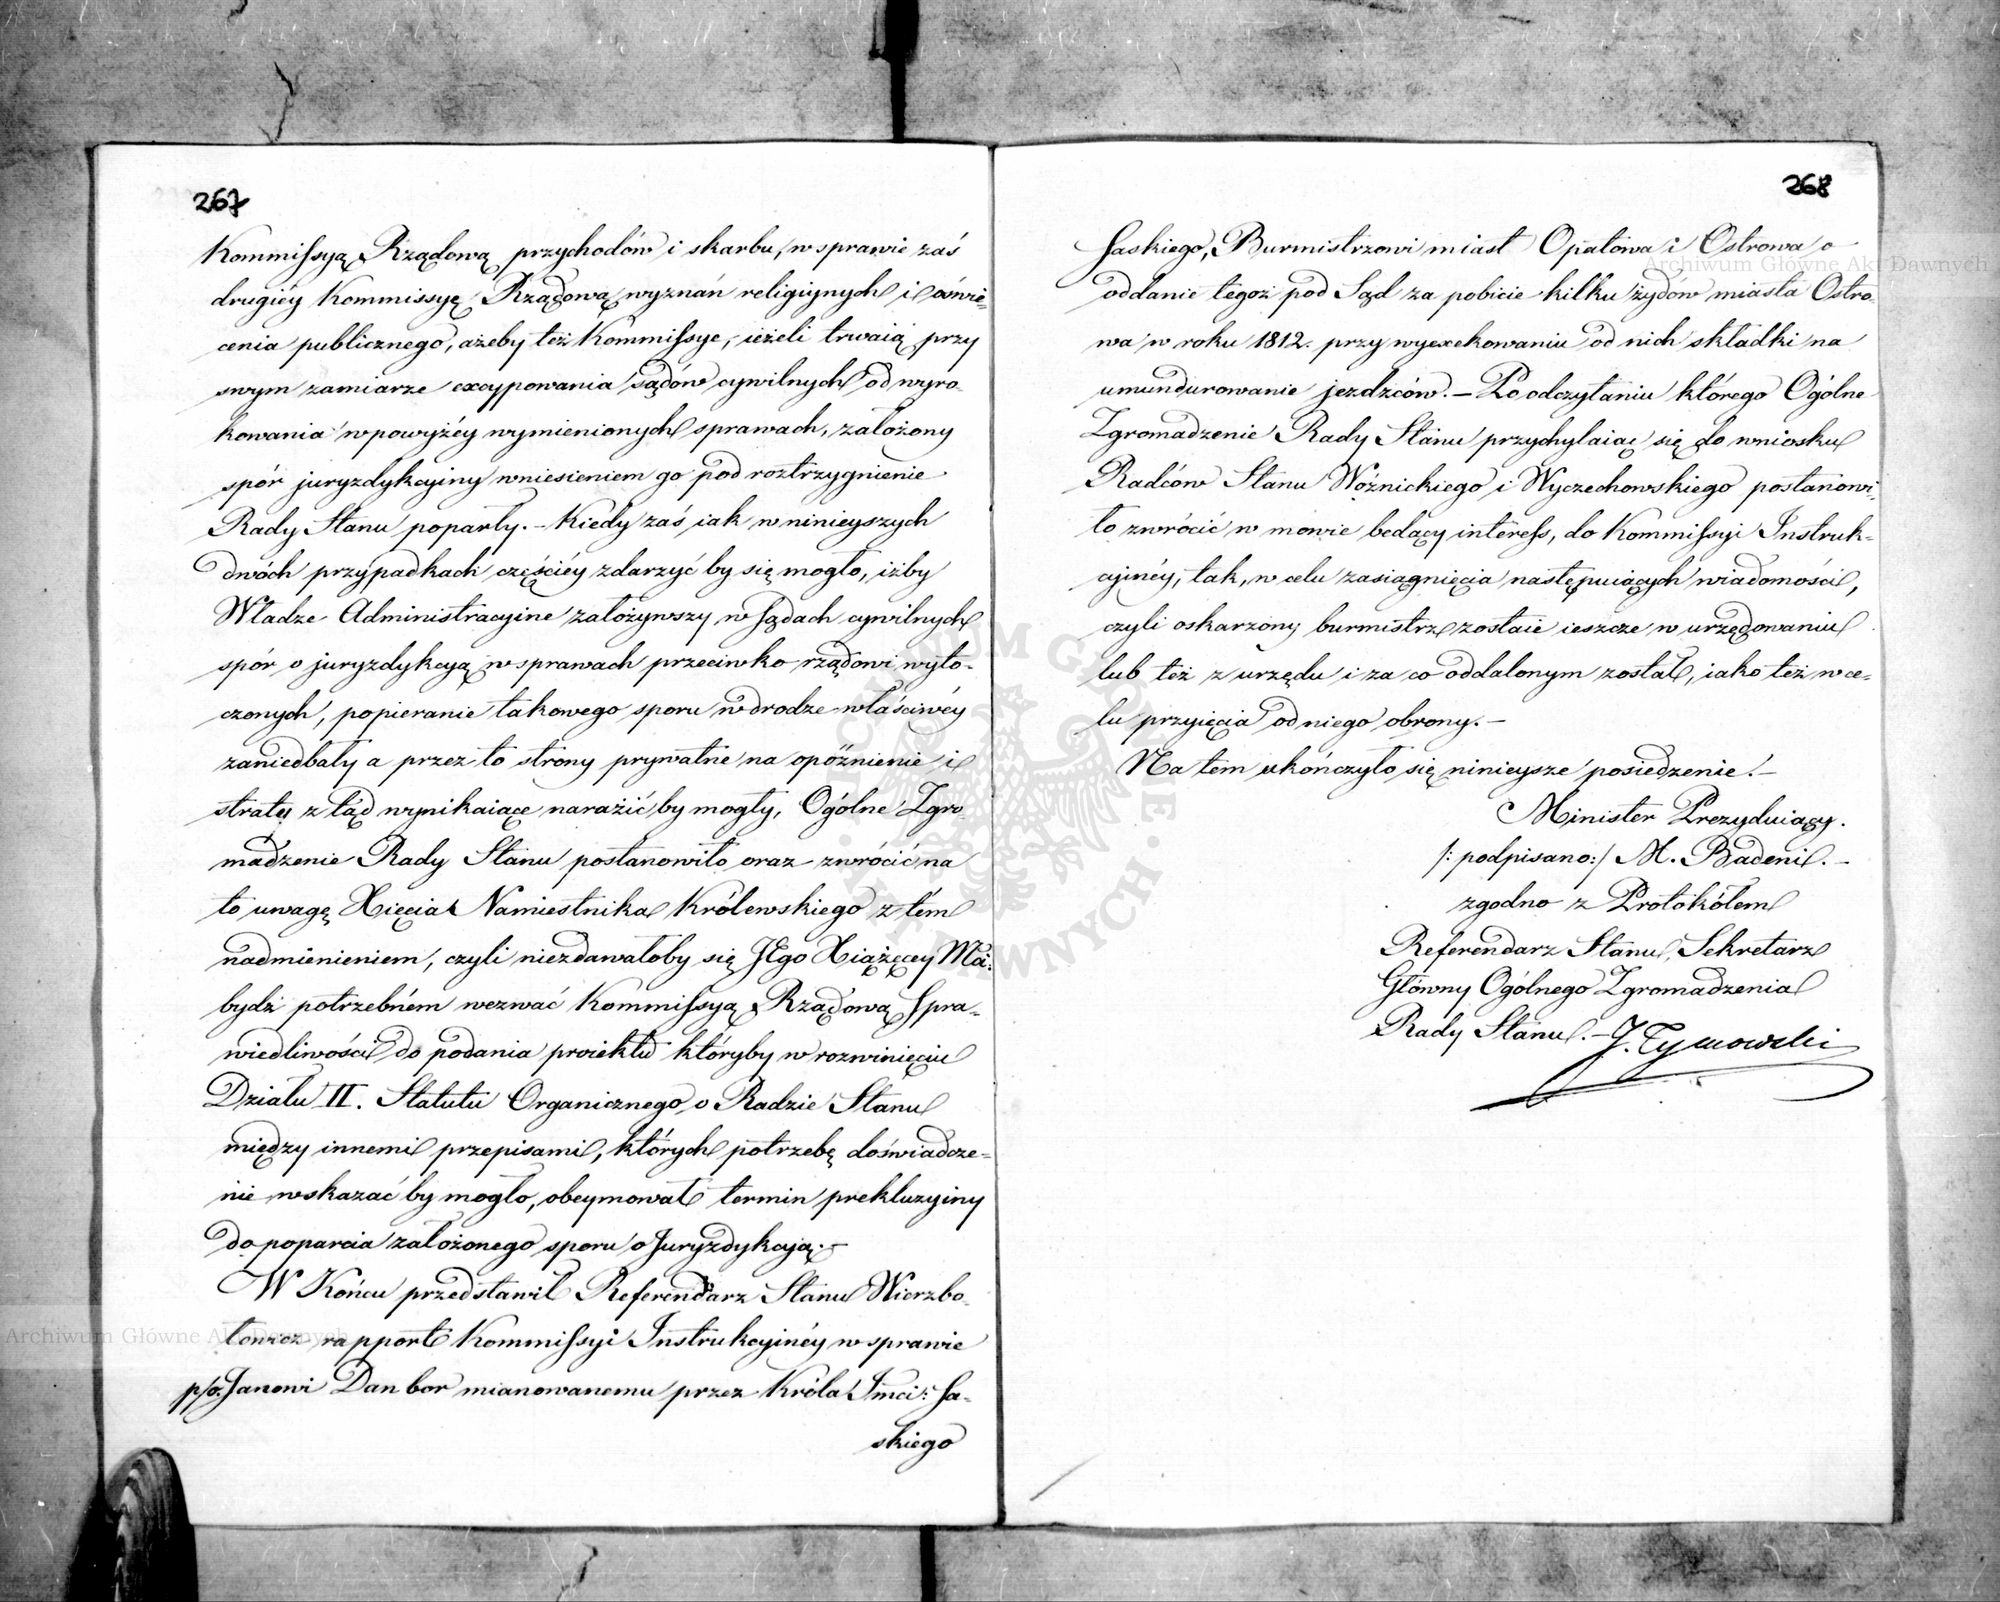 267
Kommissyą Rządową przychodów i skarbu, w sprawie zaś
drugiéy Kommissyę Rządową wyznań religiynych i oświe-
cenia publicznego, ażeby też Kommissye, ieżeli trwaią przy
swym zamiarze excypowania sądów cywilnych od wyro-
kowania w powyżéy wymienionych sprawach, założony
spór juryzdykcyiny wniesieniem go pod roztrzygnienie
Rady Stanu poparły. - Kiedy zaś iak w ninieyszych
dwóch przypadkach częściéy zdarzyć by się mogło, iżby
Władze Administracyine założywszy w sądach cywilnych
spór o juryzdykcyą w sprawach przeciwko rządowi wyto-
czonych, popieranie takowego sporu w drodze właściwéy
zaniedbały a przez to strony prywatne na opóźnienie i
straty z tąd wynikaiące narazić by mogły, Ogólne Zgro
madzenie Rady Stanu postanowiło oraz zwrócić na
to uwagę Xięcia Namiestnika Królewskiego z tém
nadmienieniem, czyli niezdawałoby się JEgo Xiążęcey Mci:
bydź potrzebném wezwać Kommissyą Rządową Spra-
wiedliwości do podania proiektu któryby w rozwinięciu
Działu II. Statutu Organicznego o Radzie Stanu
między innemi przepisami, których potrzebę doświadcze-
nie wskazać by mogło, obeymował termin prekluzyiny
do poparcia założonego sporu o Juryzdykcyą. -
W Końcu przedstawił Referendarz Stanu Wierzbo-
łowicz rapport Kommissyi Instrukcyinéy w sprawie
p/o. Janowi Danbor mianowanemu przez Króla Jmci: Sa-
skiego
268
Saskiego, Burmistrzowi miast Opatówa i Ostrowa o
oddanie tegoż pod Sąd za pobicie kilku żydów miasta Ostro-
wa w roku 1812. przy wyexekowaniu od nich składki na
umundurowanie jezdzców. - Po odczytaniu którego Ogólne
Zgromadzenie Rady Stanu przychylaiąc się do wniosku
Radców Stanu Woźnickiego i Wyczechowskiego postanowi-
ło zwrócić w mowie będący interess, do Kommissyi Instruk-
cyinéy, tak, w celu zasiągnięcia następuiących wiadomości,
czyli oskarzony burmistrz zostaie ieszcze w urzędowaniu
lub też z urzędu i za co oddalonym został, iako też w ce-
lu przyięcia od niego obrony. -
Na tem ukończyło się ninieysze posiedzenie. -
Minister Prezyduiący.
/: podpisano:/ M. Badeni. -
zgodno z Protokółem
Referendarz Stanu, Sekretarz
Główny Ogólnego Zgromadzenia
Rady Stanu. - J. Tymowski
Archiwum Główne Akt Dawnych
Archiwum Główne Akt Dawnych